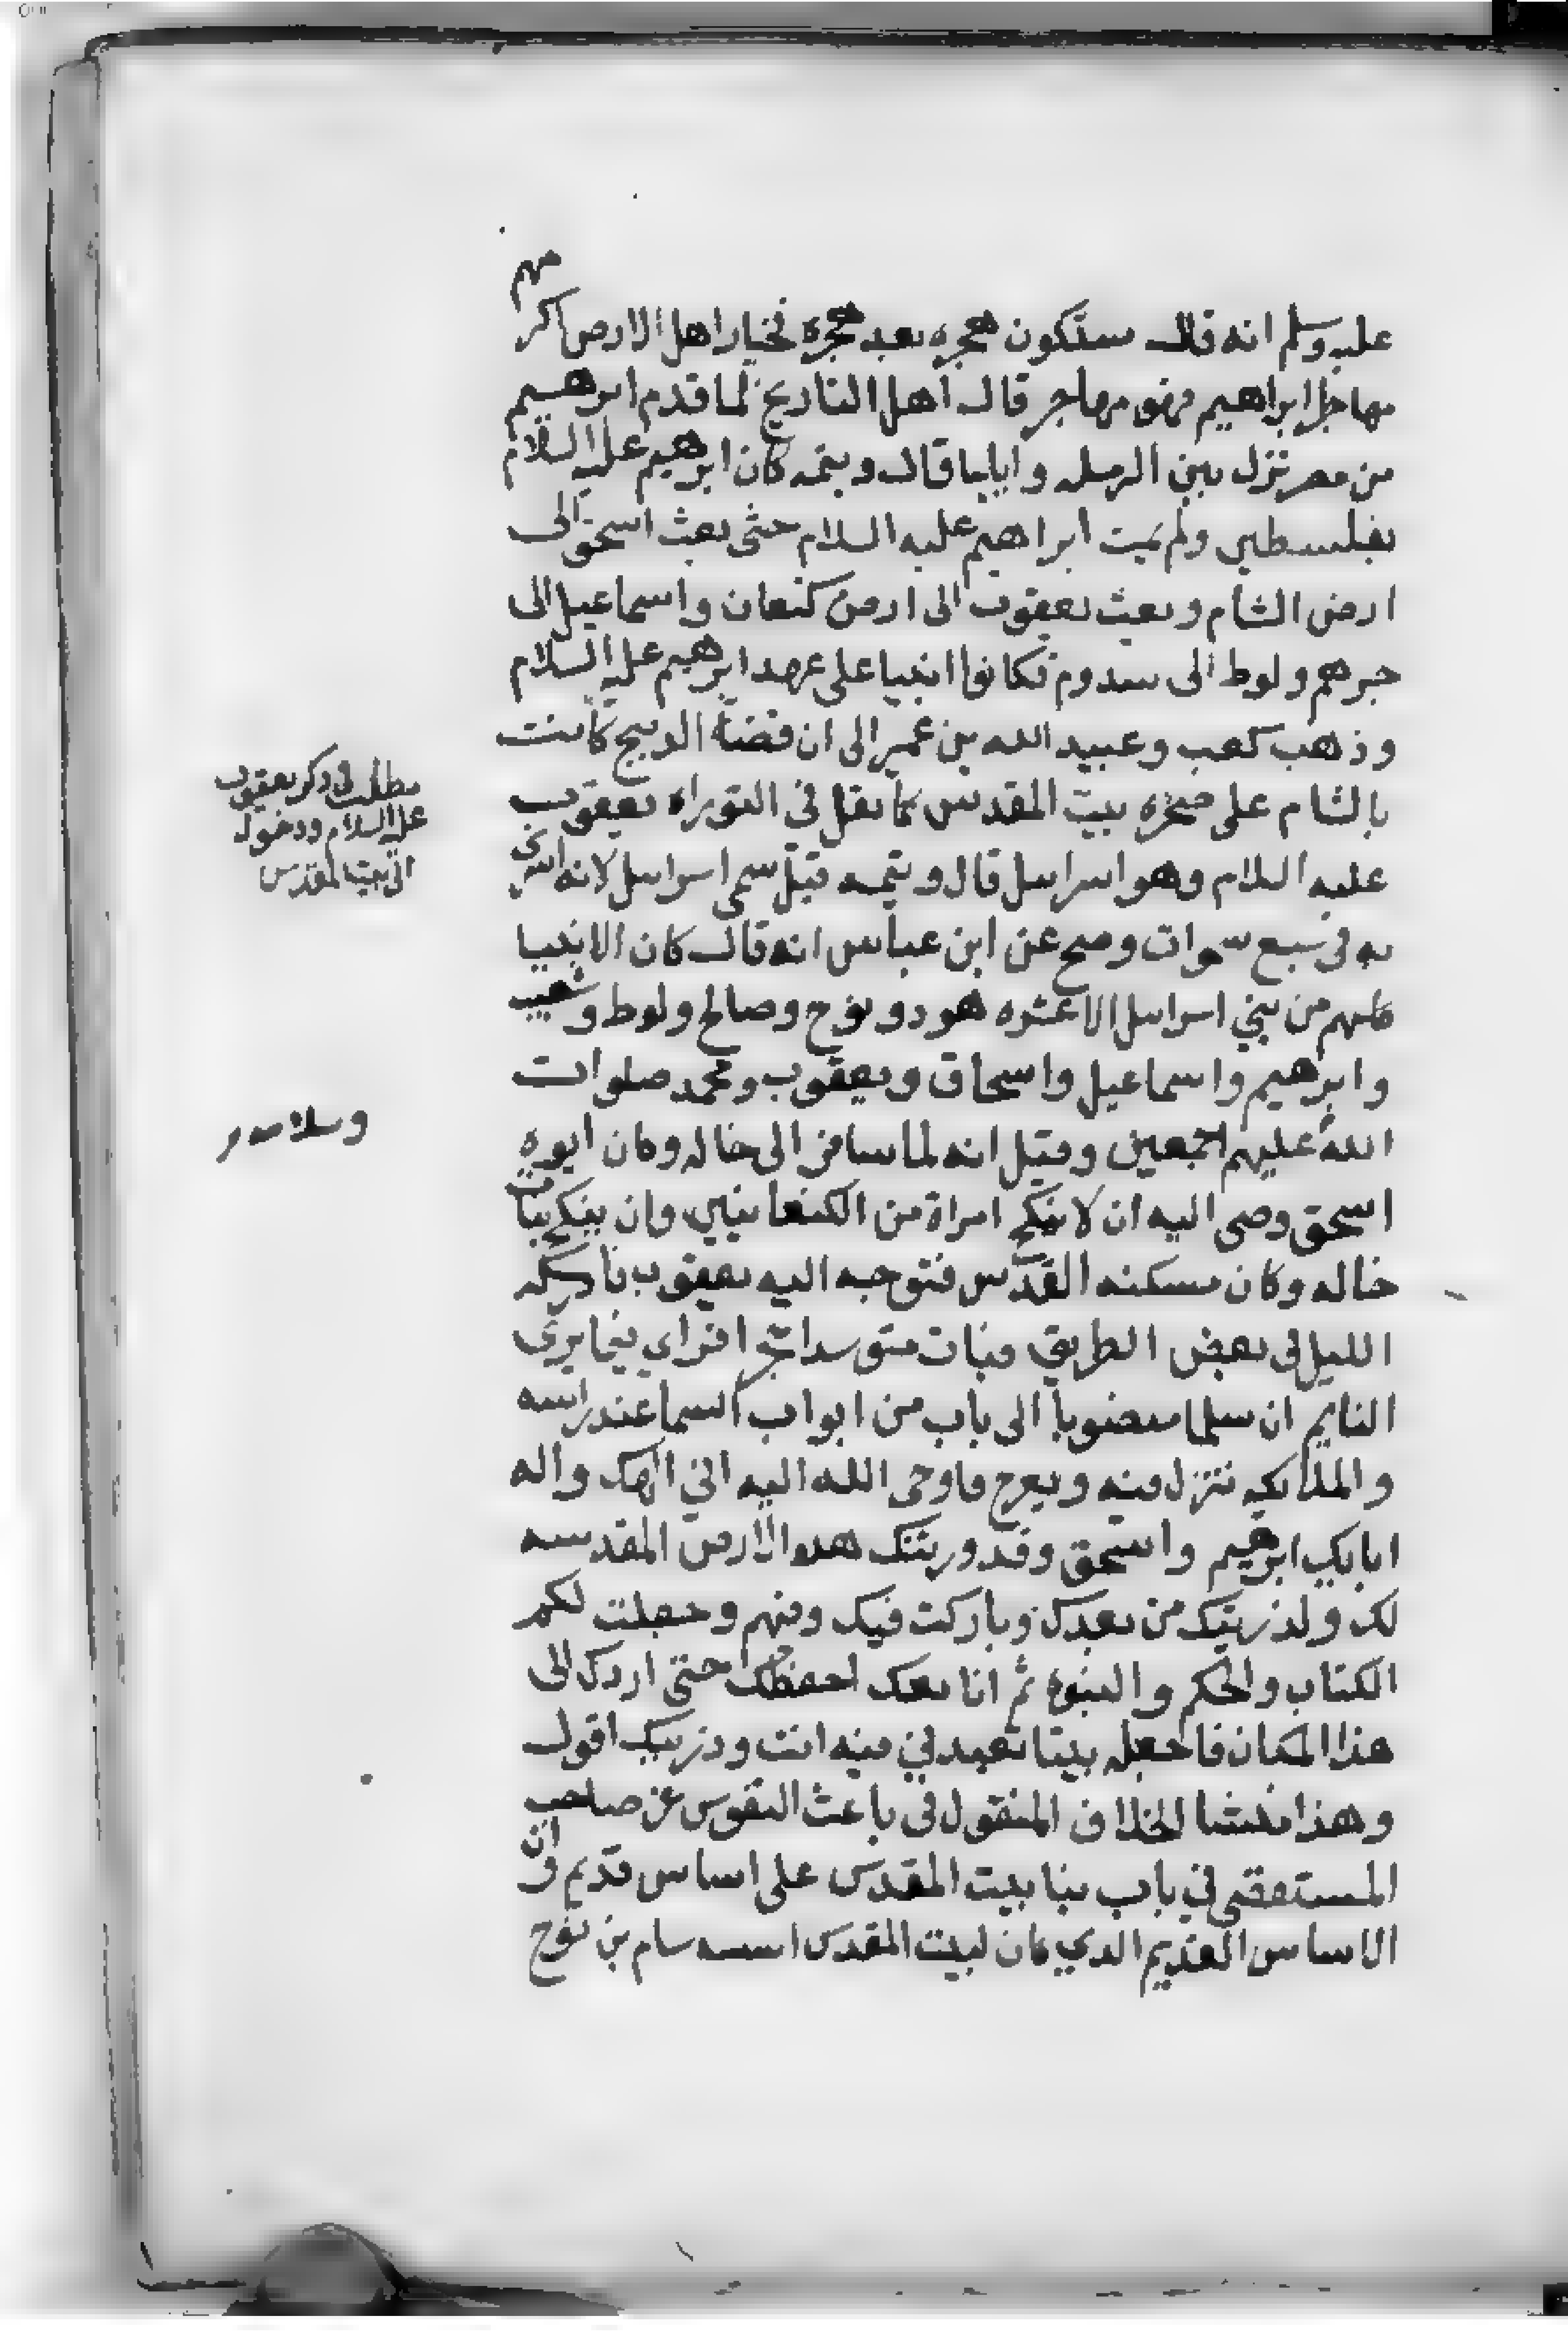 عليه وسلم انه قال ستكون هجره بعد هجره فخيار اهل الارض اكرمهم
مهاجر ابراهيم فهو مهاجر قال اهل التاريخ لما قدم ابرهيم
من مصر نزل بين الرمله وايليا قال و كان ابرهيم عليه السلام
بفلسطين ولم يمت ابراهيم عليه السلام حتى بعث اسحق الى
ارض الشام وبعث يعقوب الى ارض كنعان واسماعيل الى
جرهم ولوط الى سدوم فكانوا انبيا على عهد ابرهيم عليه السلام
وذهب كعب وعبيد الله بن عمير الى ان قضة الدبيح كانت
بالشام على صخره بيت المقدس كما نقل في التوراه يعقوب
عليه السلام وهو اسرايل قال و قيل سمى اسرايل لانه اسرى
به في سبع سموات وصح عن ابن عباس انه قال كان الانبيا
كلهم من بني اسرايل الا عشره هود ونوح وصالح ولوط وشعيب
وابرهيم واسماعيل واسحاق ويعقوب ومحمد صلوات
الله عليهم اجمعين وقيل انه لما سافر الى خاله وكان ابوه
اسحق وصى اليه ان لا ينكح امراة من الكنعانيين وان ينكح بنات
خاله وكان مسكنه القدس فتوجه اليه يعقوب فادركه
الليل في بعض الطريق فبات متوسدا حجرا فراي فيما يرى
النايم ان سلما منصوبا الى باب من ابواب السما عند راسه
والملايكه تنزل منه ويعرج فاوحى الله اليه اني الهك واله
ابايك ابرهيم واسحق وقد ورثتك هده الارض المقدسه
لك ولذريتك من بعدك وباركت فيك وفيهم وجعلت لكم
الكتاب والحكم والنبوه ثم انا معك احفظك حتى اردك الى
هذا المكان فاجعله بيتا تعبدني فيه انت وذريتك اقول
وهذا منشا الخلاف المنقول في باعث النفوس عن صاحب
المستقصى في باب بنا بيت المقدس على اساس قديم وان
الاساس القديم الدي كان لبيت المقدس اسسه سام بن نوح
مطلب في ذكر يعقوب
عليه السلام ودخوله
الى بيت المقدس
وسلامه